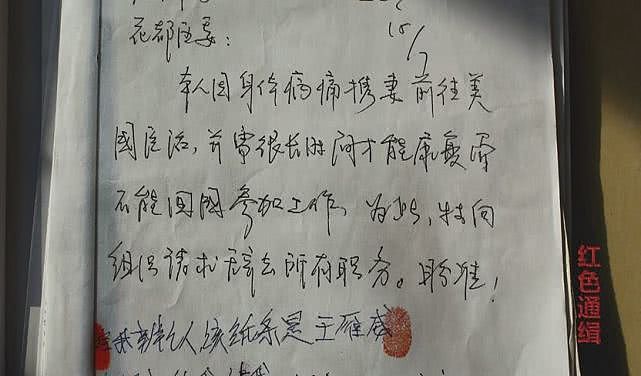 15/7
花都区委：
本人因身体病痛携妻前往美
国医治，并需很长时间才能康复
不能回国参加工作，为此，特向
组织请求辞去所有职务。盼准！
人 该纸条是王雁威
红色通缉